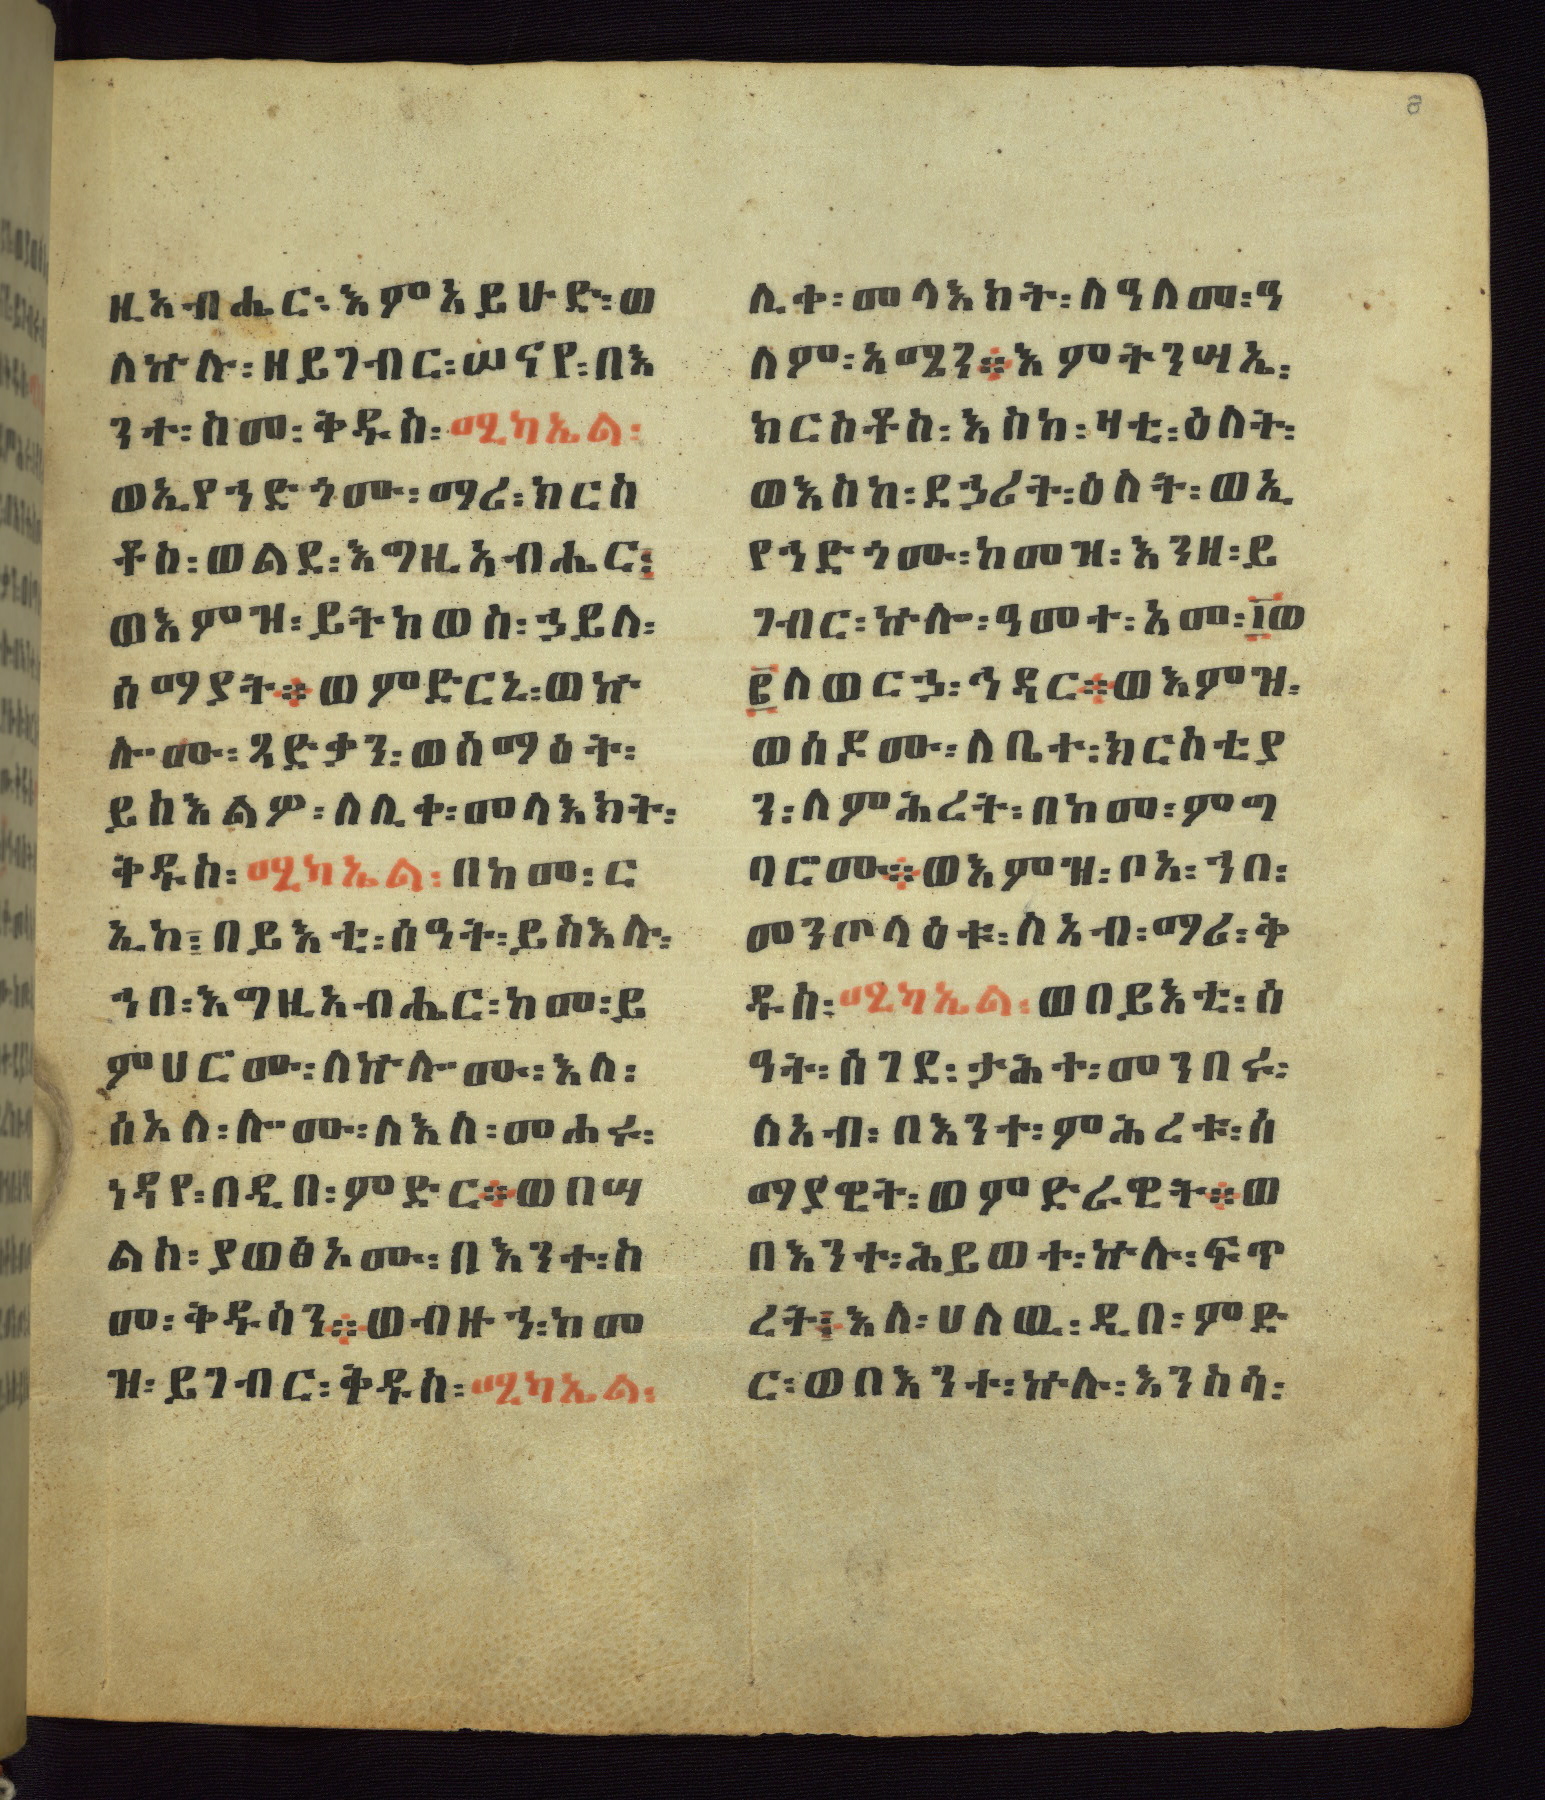 ዚአብሔር፡እምአይሁድ፡ወ
ለኵሉ፡ዘይገብር፡ሠናየ፡በእ
ንተ፡ስመ፡ቅዱስ፡ሚካኤል፡
ወኢየኀድጎሙ፡ማሪ፡ክርስ
ቶስ፡ወልደ፡እግዚአብሔር፤
ወእምዝ፡ይትከወስ፡ኃይለ፡
ሰማያት፨ወምድርኒ፡ወኵ
ሎሙ፡ጻድቃን፡ወሰማዕት፡
ይስእልዎ፡ለሊቀ፡መላእክት፡
ቅዱስ፡ሚካኤል፡በከመ፡ር
ኢከ፤በይእቲ፡ሰዓት፡ይስእሉ፡
ኀበ፡እግዚአብሔር፡ከመ፡ይ
ምሀርሙ፡ለኵሎሙ፡እለ፡
ሰአለ፡ሎሙ፡ለእለ፡መሐሩ፡
ነዳየ፡በዲበ፡ምድር፨ወበሣ
ልስ፡ያወፅአሙ፡በእንተ፡ስ
መ፡ቅዱሳን፨ወብዙኀ፡ከመ
ዝ፡ይገብር፡ቅዱስ፡ሚካኤል፡
ሊቀ፡መላእክት፡ለዓለመ፡ዓ
ለም፡አሜን፨እምትንሣኤ፡
ክርስቶስ፡እስከ፡ዛቲ፡ዕለት፡
ወእስከ፡ደኃሪት፡ዕለት፡ወኢ
የኀድጎሙ፡ከመዝ፡እንዘ፡ይ
ገብር፡ኵሎ፡ዓመተ፡አመ፡፲ወ
፪ለወርኃ፡ኅዳር፨ወእምዝ፡
ወሰዶሙ፡ለቤተ፡ክርስቲያ
ን፡ለምሕረት፡በከመ፡ምግ
ባሮሙ፨ወእምዝ፡ቦአ፡ኀበ፡
መንጦላዕቱ፡ለአብ፡ማሪ፡ቅ
ዱስ፡ሚካኤል፡ወበይእቲ፡ሰ
ዓት፡ሰገደ፡ታሕተ፡መንበሩ፡
ለአብ፡በእንተ፡ምሕረቱ፡ሰ
ማያዊት፡ወምድራዊት፨ወ
በእንተ፡ሕይወተ፡ኵሉ፡ፍጥ
ረት፤እለ፡ሀለዉ፡ዲበ፡ምድ
ር፡ወበእንተ፡ኵሉ፡እንስሳ፡